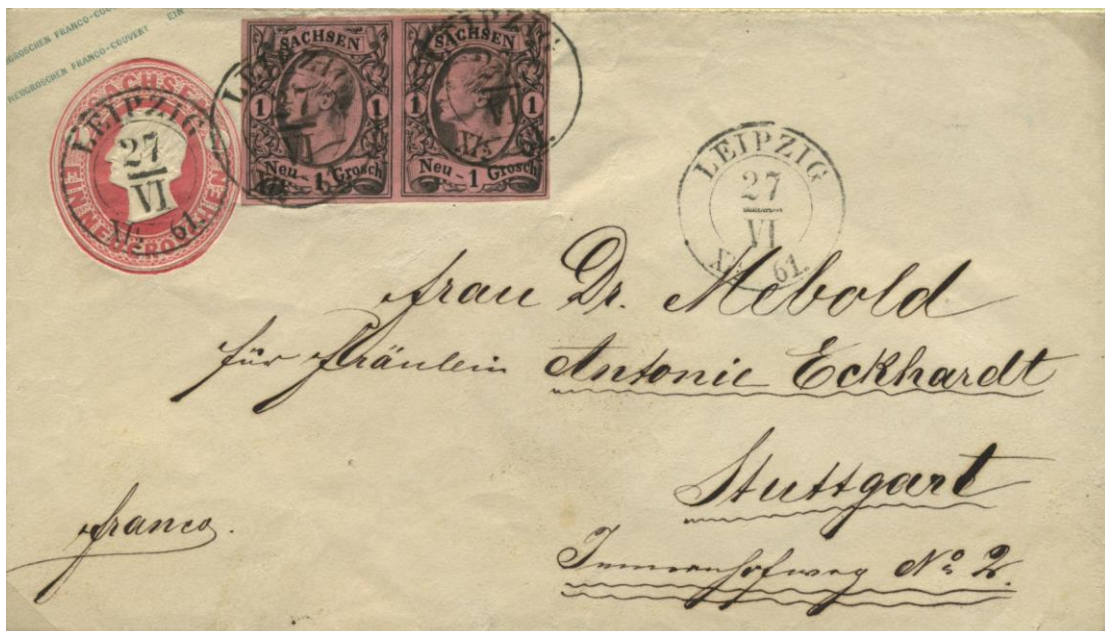 NEUGROSCHEN FRANCO-COUVERT EIN
NEUGROSCHEN FRANCO-COUVERT
SACHSEN
EIN NEUGROSCHEN
LEIPZIG
27
VI
61.
SACHSEN
1 1
Neu - 1 Grosch
LEIPZIG
VI
SACHSEN
1 1
Neu - 1 Grosch
LEIPZIG
VI
XI¾ 61.
LEIPZIG
27
VI
61.
Frau Dr. Mebold
für Fräulein Antonie Eckhardt
Stuttgart
Immenhofweg No 2.
franco.